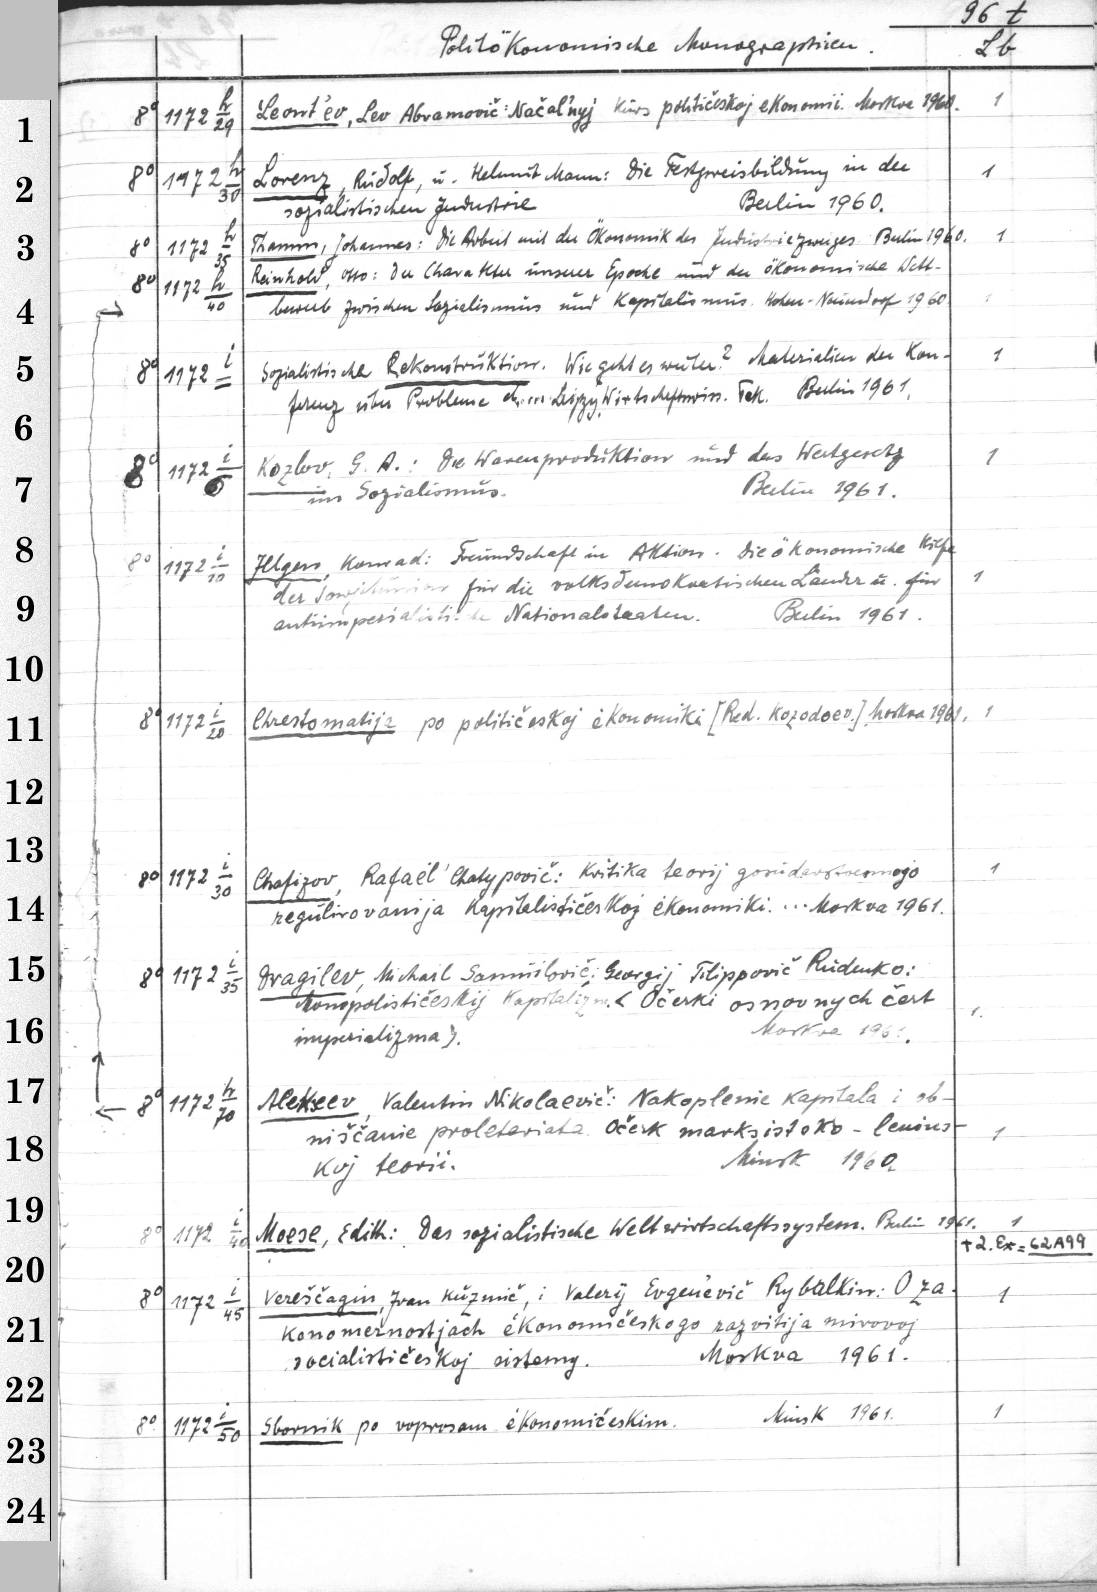 96 t
Politökonomische Monographien. Lb
1 8° 1172 h/29 Leont'ev, Lev Abramovič: Načal'nyj kurs političeskoj ėkonomii. Moskva 1960. 1
2 8° 1172 h/30 Lorenz, Rudolf, u. Helmut Mann: Die Festpreisbildung in der 1
sozialistischen Industrie Berlin 1960.
3 8° 1172 h/35 Thamm, Johannes: Die Arbeit mit der Ökonomik des Industriezweiges Berlin 1960. 1
8° 1172 h/40 Reinhold, Otto: Der Charakter unserer Epoche und der ökonomische Wett-
4 bewerb zwischen Sozialismus und Kapitalismus. Hohen-Neuendorf 1960 1
5 8° 1172 i Sozialistische Rekonstruktion. Wie geht es weiter? Materialien der Kon- 1
ferenz über Probleme Leipzig, Wirtschaftswiss. Fak. Berlin 1961.
6
8° 1172 i/6 Kozlov, G. A.: Die Warenproduktion und das Wertgesetz 1
7 im Sozialismus. Berlin 1961.
8 8° 1172 i/10 Illgen, Konrad: Freundschaft in Aktion. Die ökonomische Hilfe
der Sowjetunion für die volksdemokratischen Länder u. für 1
9 antiimperialistische Nationalstaaten. Berlin 1961.
10
11 8° 1172 i/20 Chrestomatija po političeskoj ėkonomiki [Red. Kozodoev.] Moskva 1961. 1
12
13
8° 1172 i/30 Chafizov, Rafaėl' Chatypovič: Kritika teorij gosudarstvennogo 1
14 regulirovanija kapitalističeskoj ėkonomiki. ... Moskva 1961.
15 8° 1172 i/35 Dragilev, Michail Samuilovič; Georgij Filippovič Rudenko:
Monopolističeskij kapitalizm. < Očerki osnovnych čert 1.
16 imperializma>. Moskva 1961.
17 8° 1172 h/70 Alekseev, Valentin Nikolaevič: Nakoplenie kapitala i ob-
niščanie proletariata. Očerk marksistsko-lenins- 1
18 koj teorii. Minsk 1960
19 8° 1172 i/40 Moese, Edith: Das sozialistische Weltwirtschaftssystem. Berlin 1961. 1
+ 2. Ex = 62A99
20 8° 1172 i/45 Vereščagin, Ivan Kuz'mič, i Valerij Evgen'evič Rybalkin: O za- 1
21 konomernostjach ėkonomičeskogo razvitija mirovoj
socialističeskoj sistemy. Moskva 1961.
22
8° 1172 i/50 Sbornik po voprosam ėkonomičeskim. Minsk 1961. 1
23
24